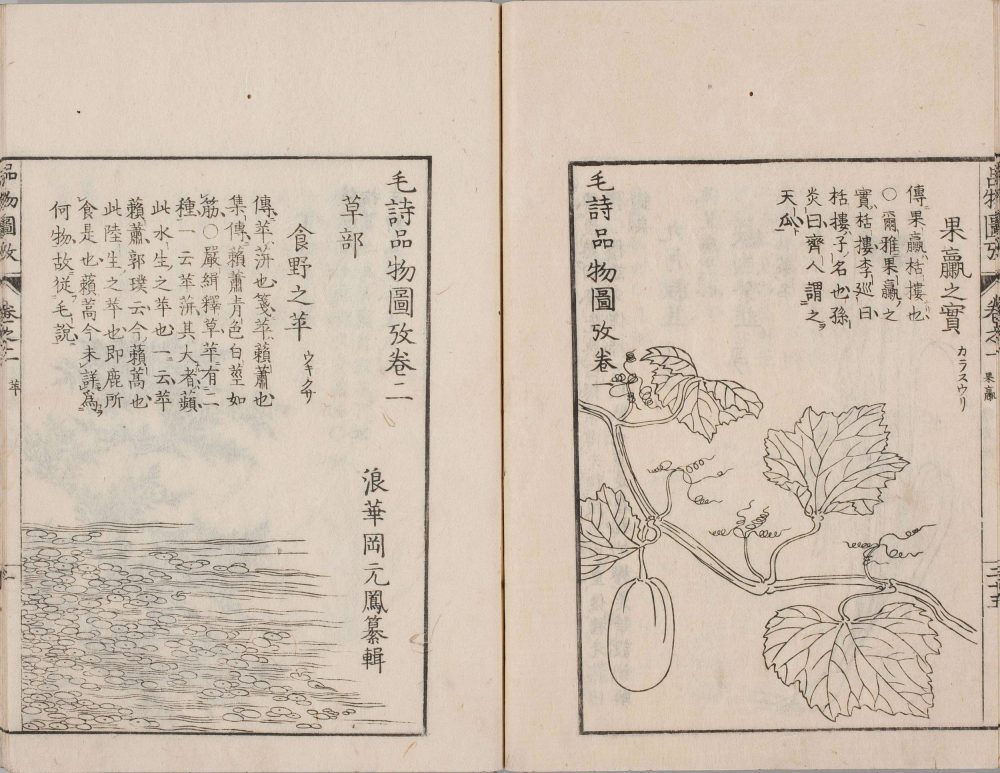 品物圖攷 卷之一 果臝 三十五
果臝之實 カラスウリ
傳果臝栝樓也
○爾雅果臝之
實栝樓李巡曰
栝樓子名也孫
炎曰齊人謂之
天瓜
毛詩品物圖攷卷一
毛詩品物圖攷卷二
浪華岡元鳳纂輯
草部
食野之苹 ウキクサ
傳苹蓱也箋苹藾蕭也
集傳藾蕭青色白莖如
筋○嚴緝釋草苹有二
種一云苹蓱其大者蘋
此水生之苹也一云苹
藾蕭郭璞云今藾蒿也
此陸生之苹也即鹿所
食是也藾蒿今未詳爲
何物故從毛說
品物圖攷 卷之二 苹